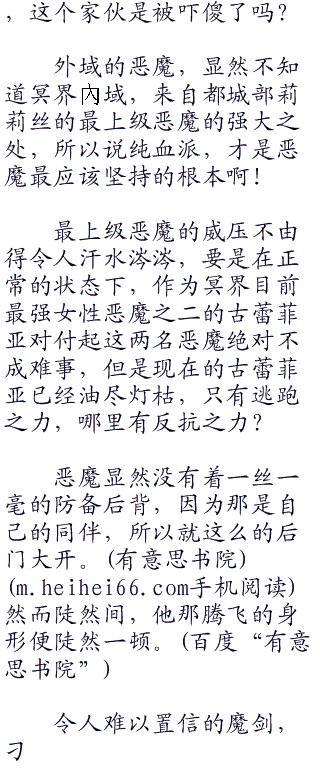 ，这个家伙是被吓傻了吗？
外域的恶魔，显然不知
道冥界內域，来自都城部莉
莉丝的最上级恶魔的强大之
处，所以说纯血派，才是恶
魔最应该坚持的根本啊！
最上级恶魔的威压不由
得令人汗水涔涔，要是在正
常的状态下，作为冥界目前
最强女性恶魔之二的古蕾菲
亚对付起这两名恶魔绝对不
成难事，但是现在的古蕾菲
亚已经油尽灯枯，只有逃跑
之力，哪里有反抗之力？
恶魔显然没有着一丝一
毫的防备后背，因为那是自
己的同伴，所以就这么的后
门大开。(有意思书院)
(m.heihei66.com手机阅读)
然而陡然间，他那腾飞的身
形便陡然一顿。(百度“有意
思书院”)
令人难以置信的魔剑，
刁